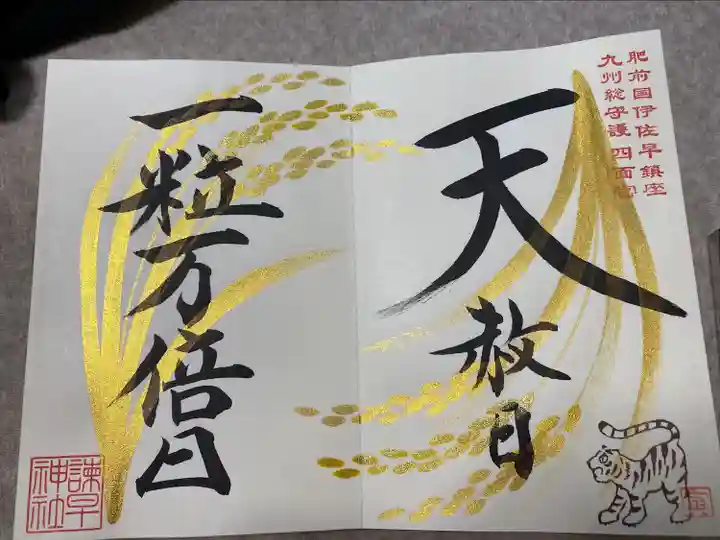 肥前国伊佐早鎮座
九州総守護 四面宮
天赦日
一粒万倍日
諫早
神社